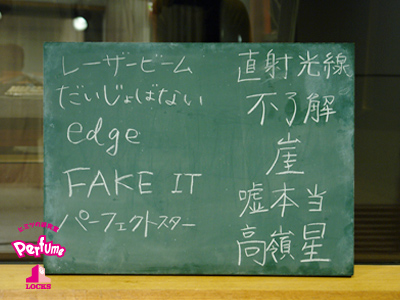 レーザービーム
だいじょばない
edge
FAKE IT
パーフェクトスター
直射光線
不了解
崖
嘘本当
高嶺星
Perfume
LOCKS